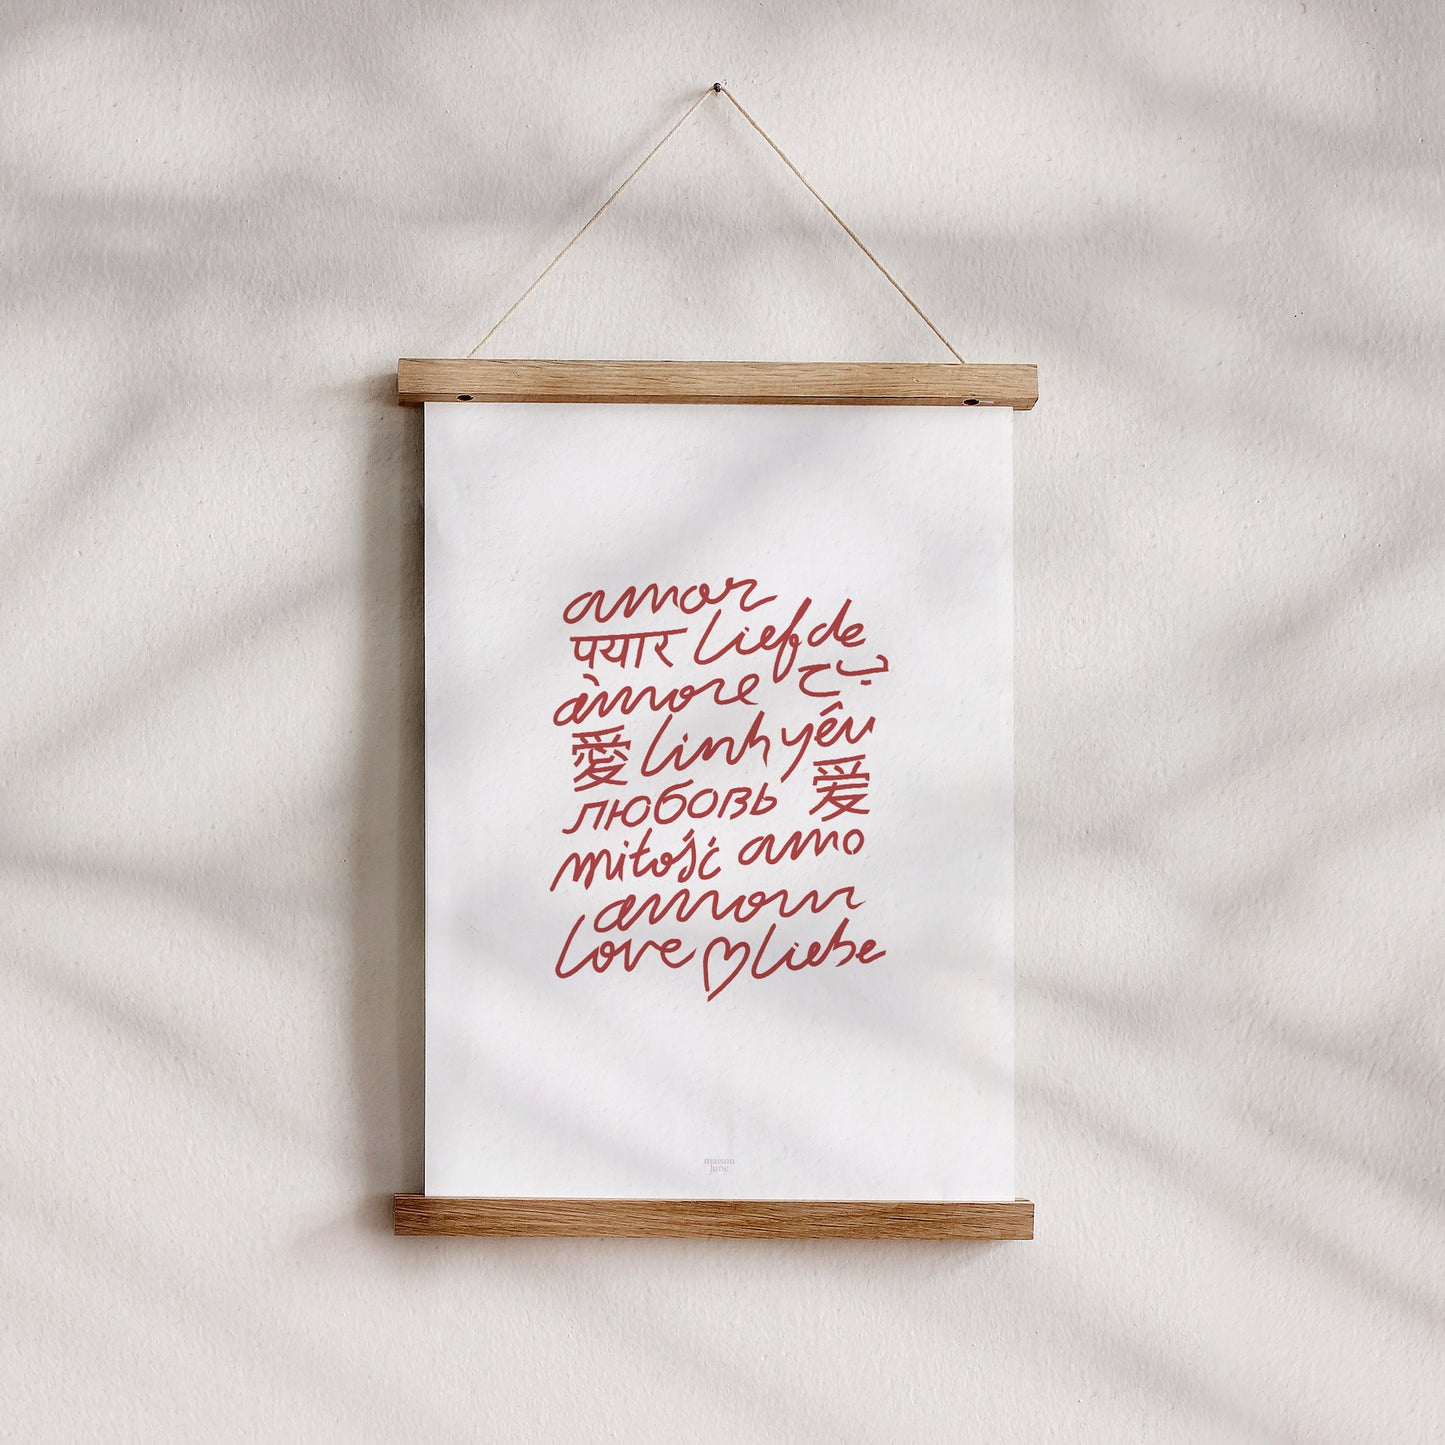 amor
प्यार liefde
amore ب ح
愛 linh yêu
любовь 爱
miłość amo
amour
love liebe
maison
june